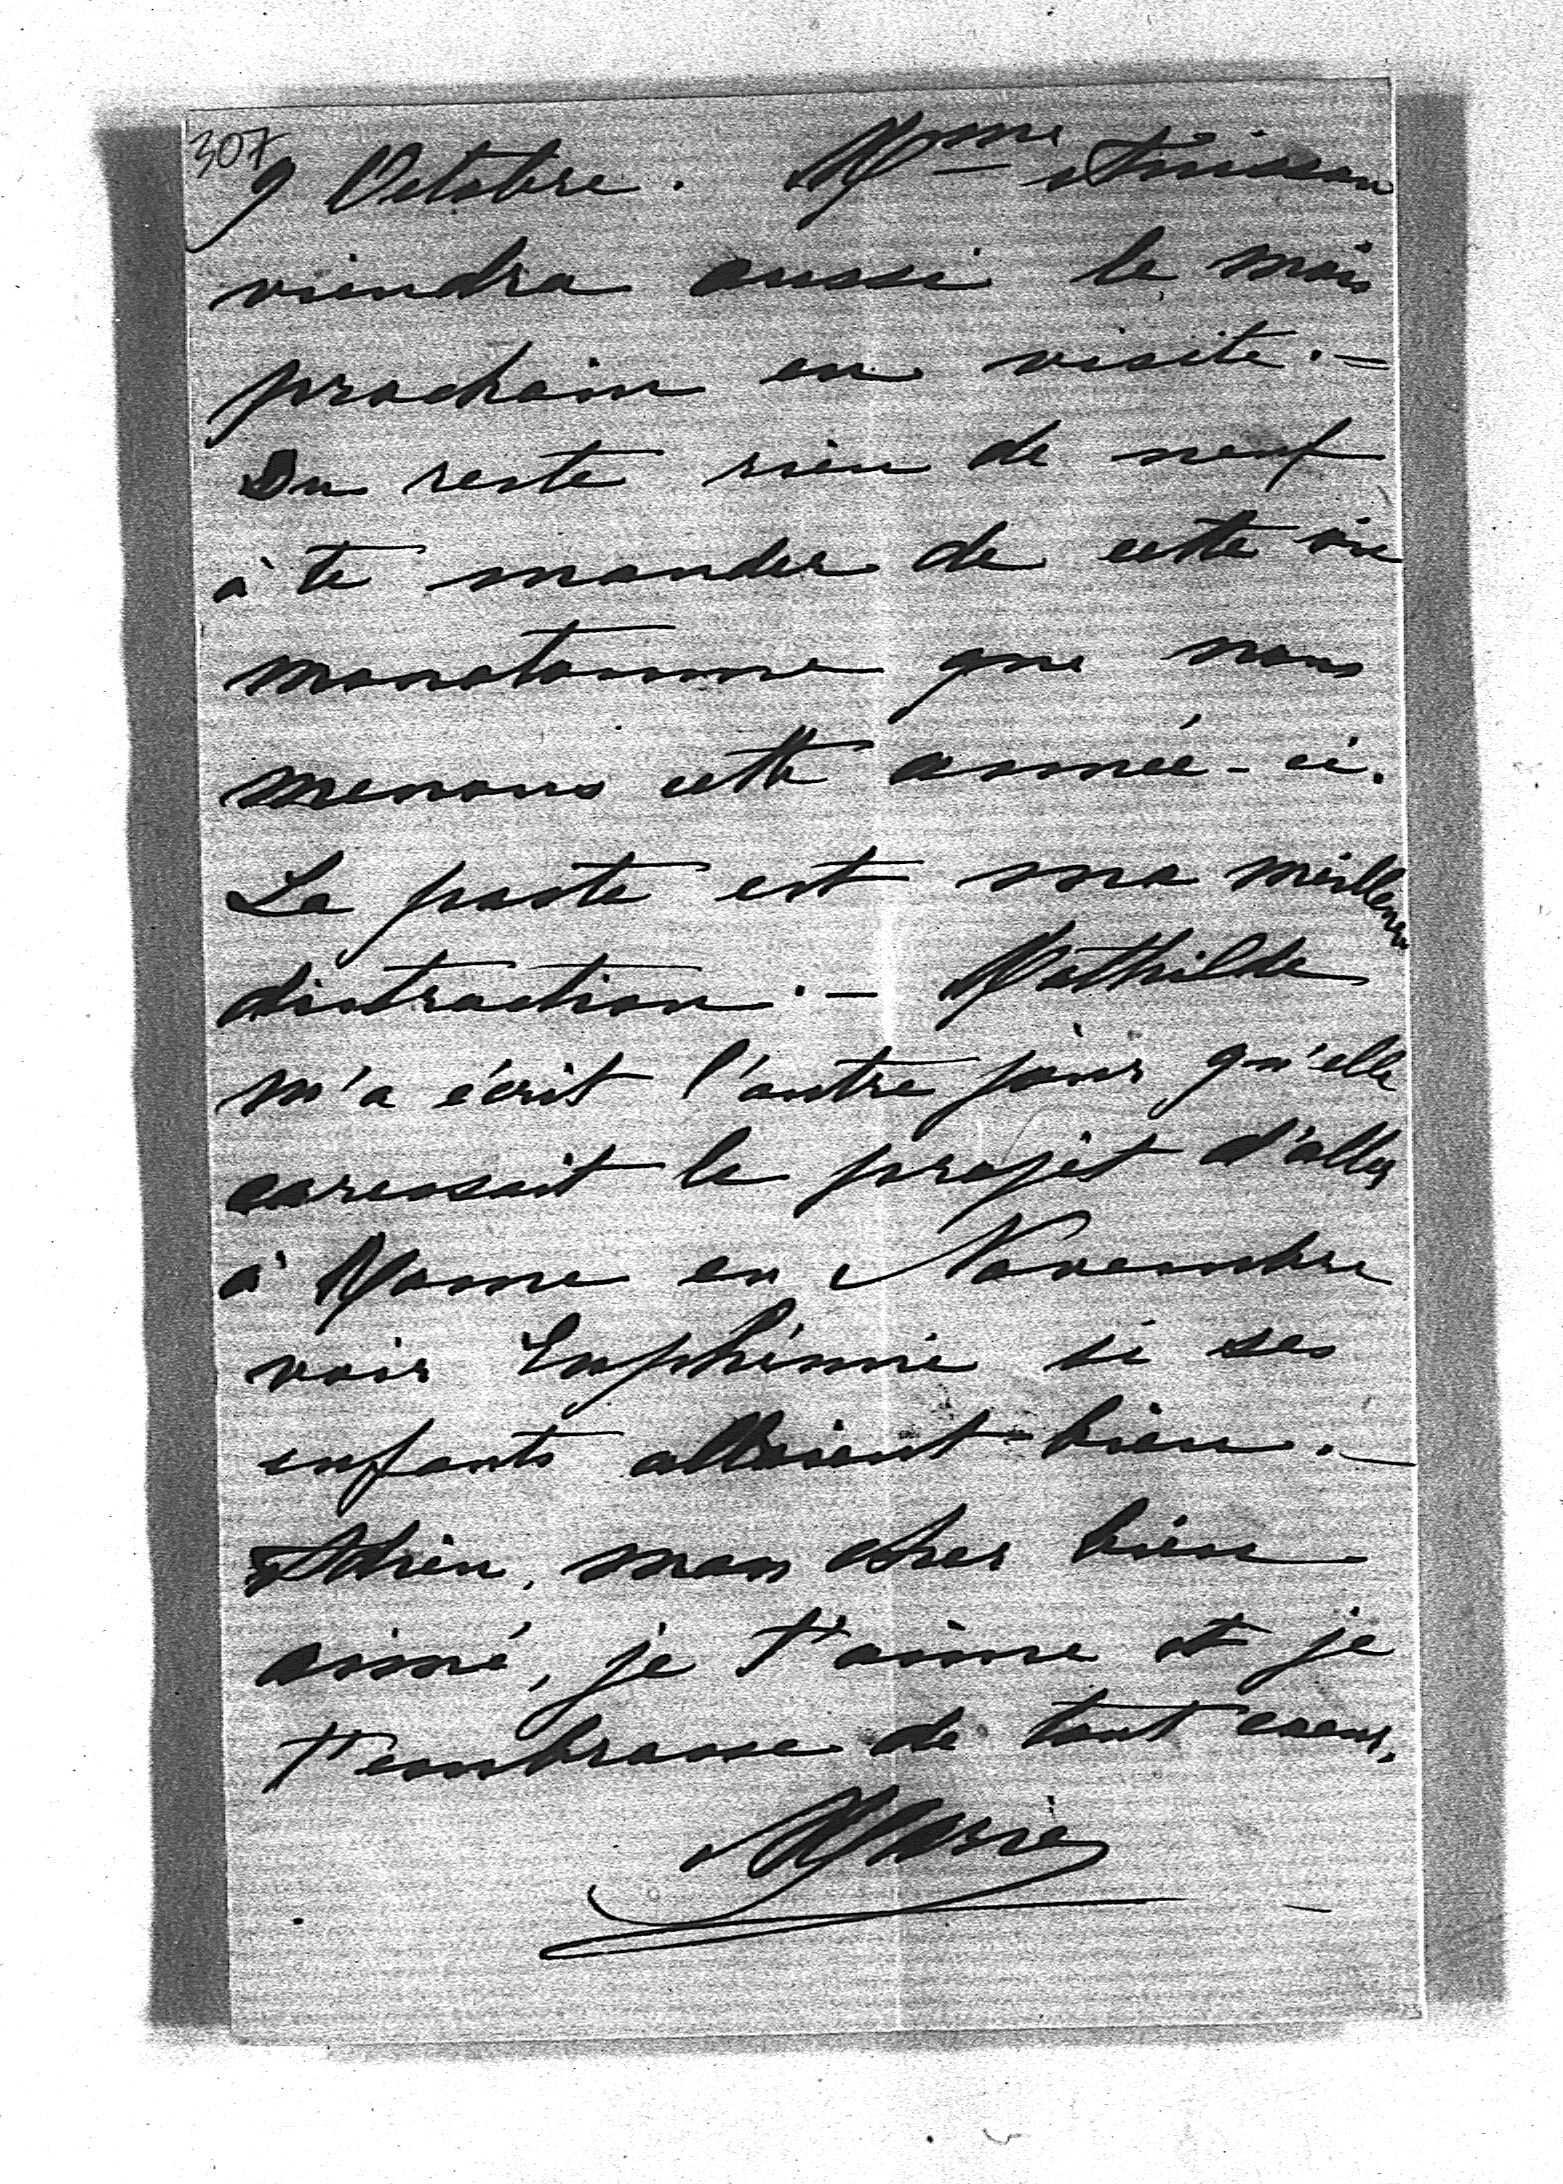 307
9 Octobre. Mme
viendra aussi le mois
prochain en visite. –
Du reste rien de neuf
à te mander de cette vie
monotonne que nous
menons cette année-ci.
La poste est ma meilleure
distraction. – Mathilde
m'a écrit l'autre jour qu'elle
caressait le projet d'aller
à Rome en Novembre
voir Euphémie si ses
enfants allaient bien. –
Adieu, mon cher bien
aimé, je t'aime et je
t'embrasse de tout coeur.
Marie